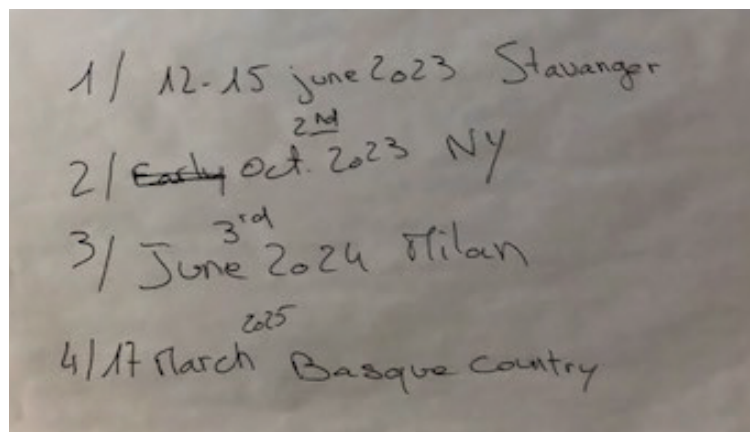 1/ 12-15 june 2023 Stavanger
2nd
2/ Early Oct. 2023 NY
3rd
3/ June 2024 Milan
2025
4/ 17 March Basque Country